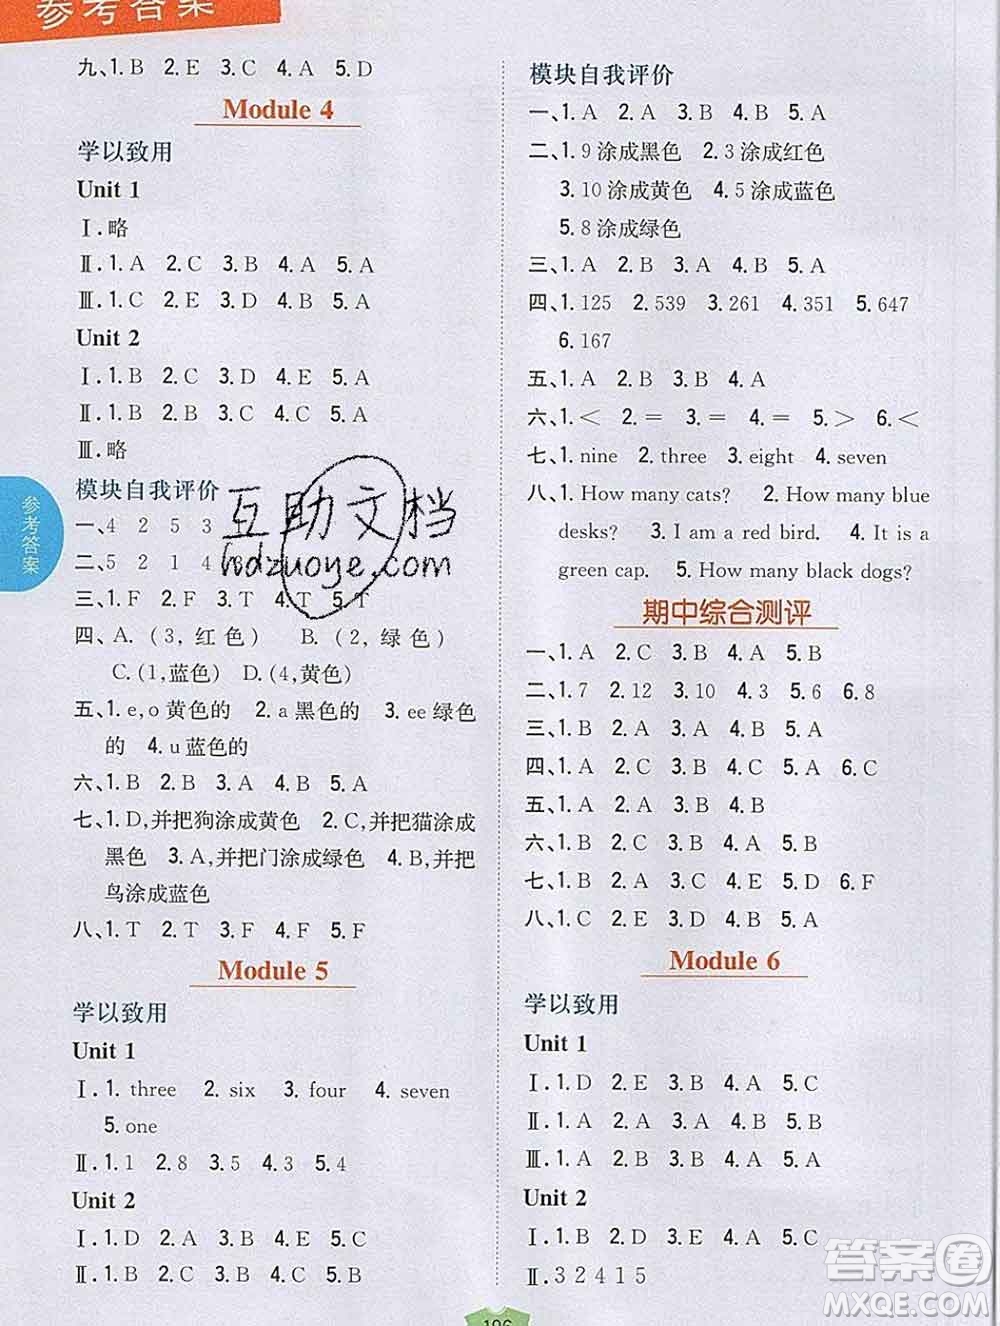 参考答案
九、1.B 2.E 3.C 4.A 5.D
Module 4
学以致用
Unit 1
Ⅰ.略
Ⅱ.1.A 2.C 3.B 4.A 5.A
Ⅲ.1.C 2.E 3.D 4.B 5.A
Unit 2
Ⅰ.1.B 2.C 3.D 4.E 5.A
Ⅱ.1.B 2.B 3.C 4.A 5.A
Ⅲ.略
模块自我评价
一、4 2 5 3
二、5 2 1 4
三、1.F 2.F 3.T 4.T 5.T
四、A.(3,红色) B.(2,绿色)
C.(1,蓝色) D.(4,黄色)
五、1.e,o黄色的 2.a黑色的 3.ee绿色
的 4.u蓝色的
六、1.B 2.B 3.A 4.B 5.A
七、1.D,并把狗涂成黄色 2.C,并把猫涂成
黑色 3.A,并把门涂成绿色 4.B,并把
鸟涂成蓝色
八、1.T 2.T 3.F 4.T 5.F
Module 5
学以致用
Unit 1
Ⅰ.1.three 2.six 3.four 4.seven
5.one
Ⅱ.1.1 2.8 3.5 4.3 5.4
Unit 2
Ⅰ.1.D 2.A 3.E 4.B 5.C
Ⅱ.1.B 2.C 3.C 4.B 5.B
模块自我评价
一、1.A 2.A 3.B 4.B 5.A
二、1.9涂成黑色 2.3涂成红色
3.10涂成黄色 4.5涂成蓝色
5.8涂成绿色
三、1.A 2.B 3.B 4.A 5.A
四、1.125 2.539 3.261 4.351 5.647
6.167
五、1.A 2.A 3.B 4.A
六、1.< 2.= 3.= 4.= 5.> 6.<
七、1.nine 2.three 3.eight 4.seven
八、1.How many cats? 2.How many blue
desks? 3.I am a red bird. 4.It is a
green cap. 5.How many black dogs?
期中综合测评
一、1.A 2.C 3.B 4.A 5.B
二、1.7 2.12 3.10 4.3 5.6 6.8
三、1.B 2.A 3.B 4.B 5.A
四、1.A 2.B 3.C 4.B 5.A 6.C
五、1.A 2.A 3.B 4.B
六、1.B 2.C 3.C 4.A 5.B
七、1.B 2.E 3.A 4.C 5.D 6.F
八、1.C 2.D 3.B 4.A
Module 6
学以致用
Unit 1
Ⅰ.1.D 2.E 3.B 4.A 5.C
Ⅱ.1.A 2.C 3.B 4.A 5.C
Ⅲ.1.A 2.B 3.B 4.A 5.A
Unit 2
Ⅰ.1.D 2.B 3.E 4.A 5.C
Ⅱ.3 2 4 1 5
参考答案
106
互助文档
hdzuoye.com
答案圈
MXQE.COM